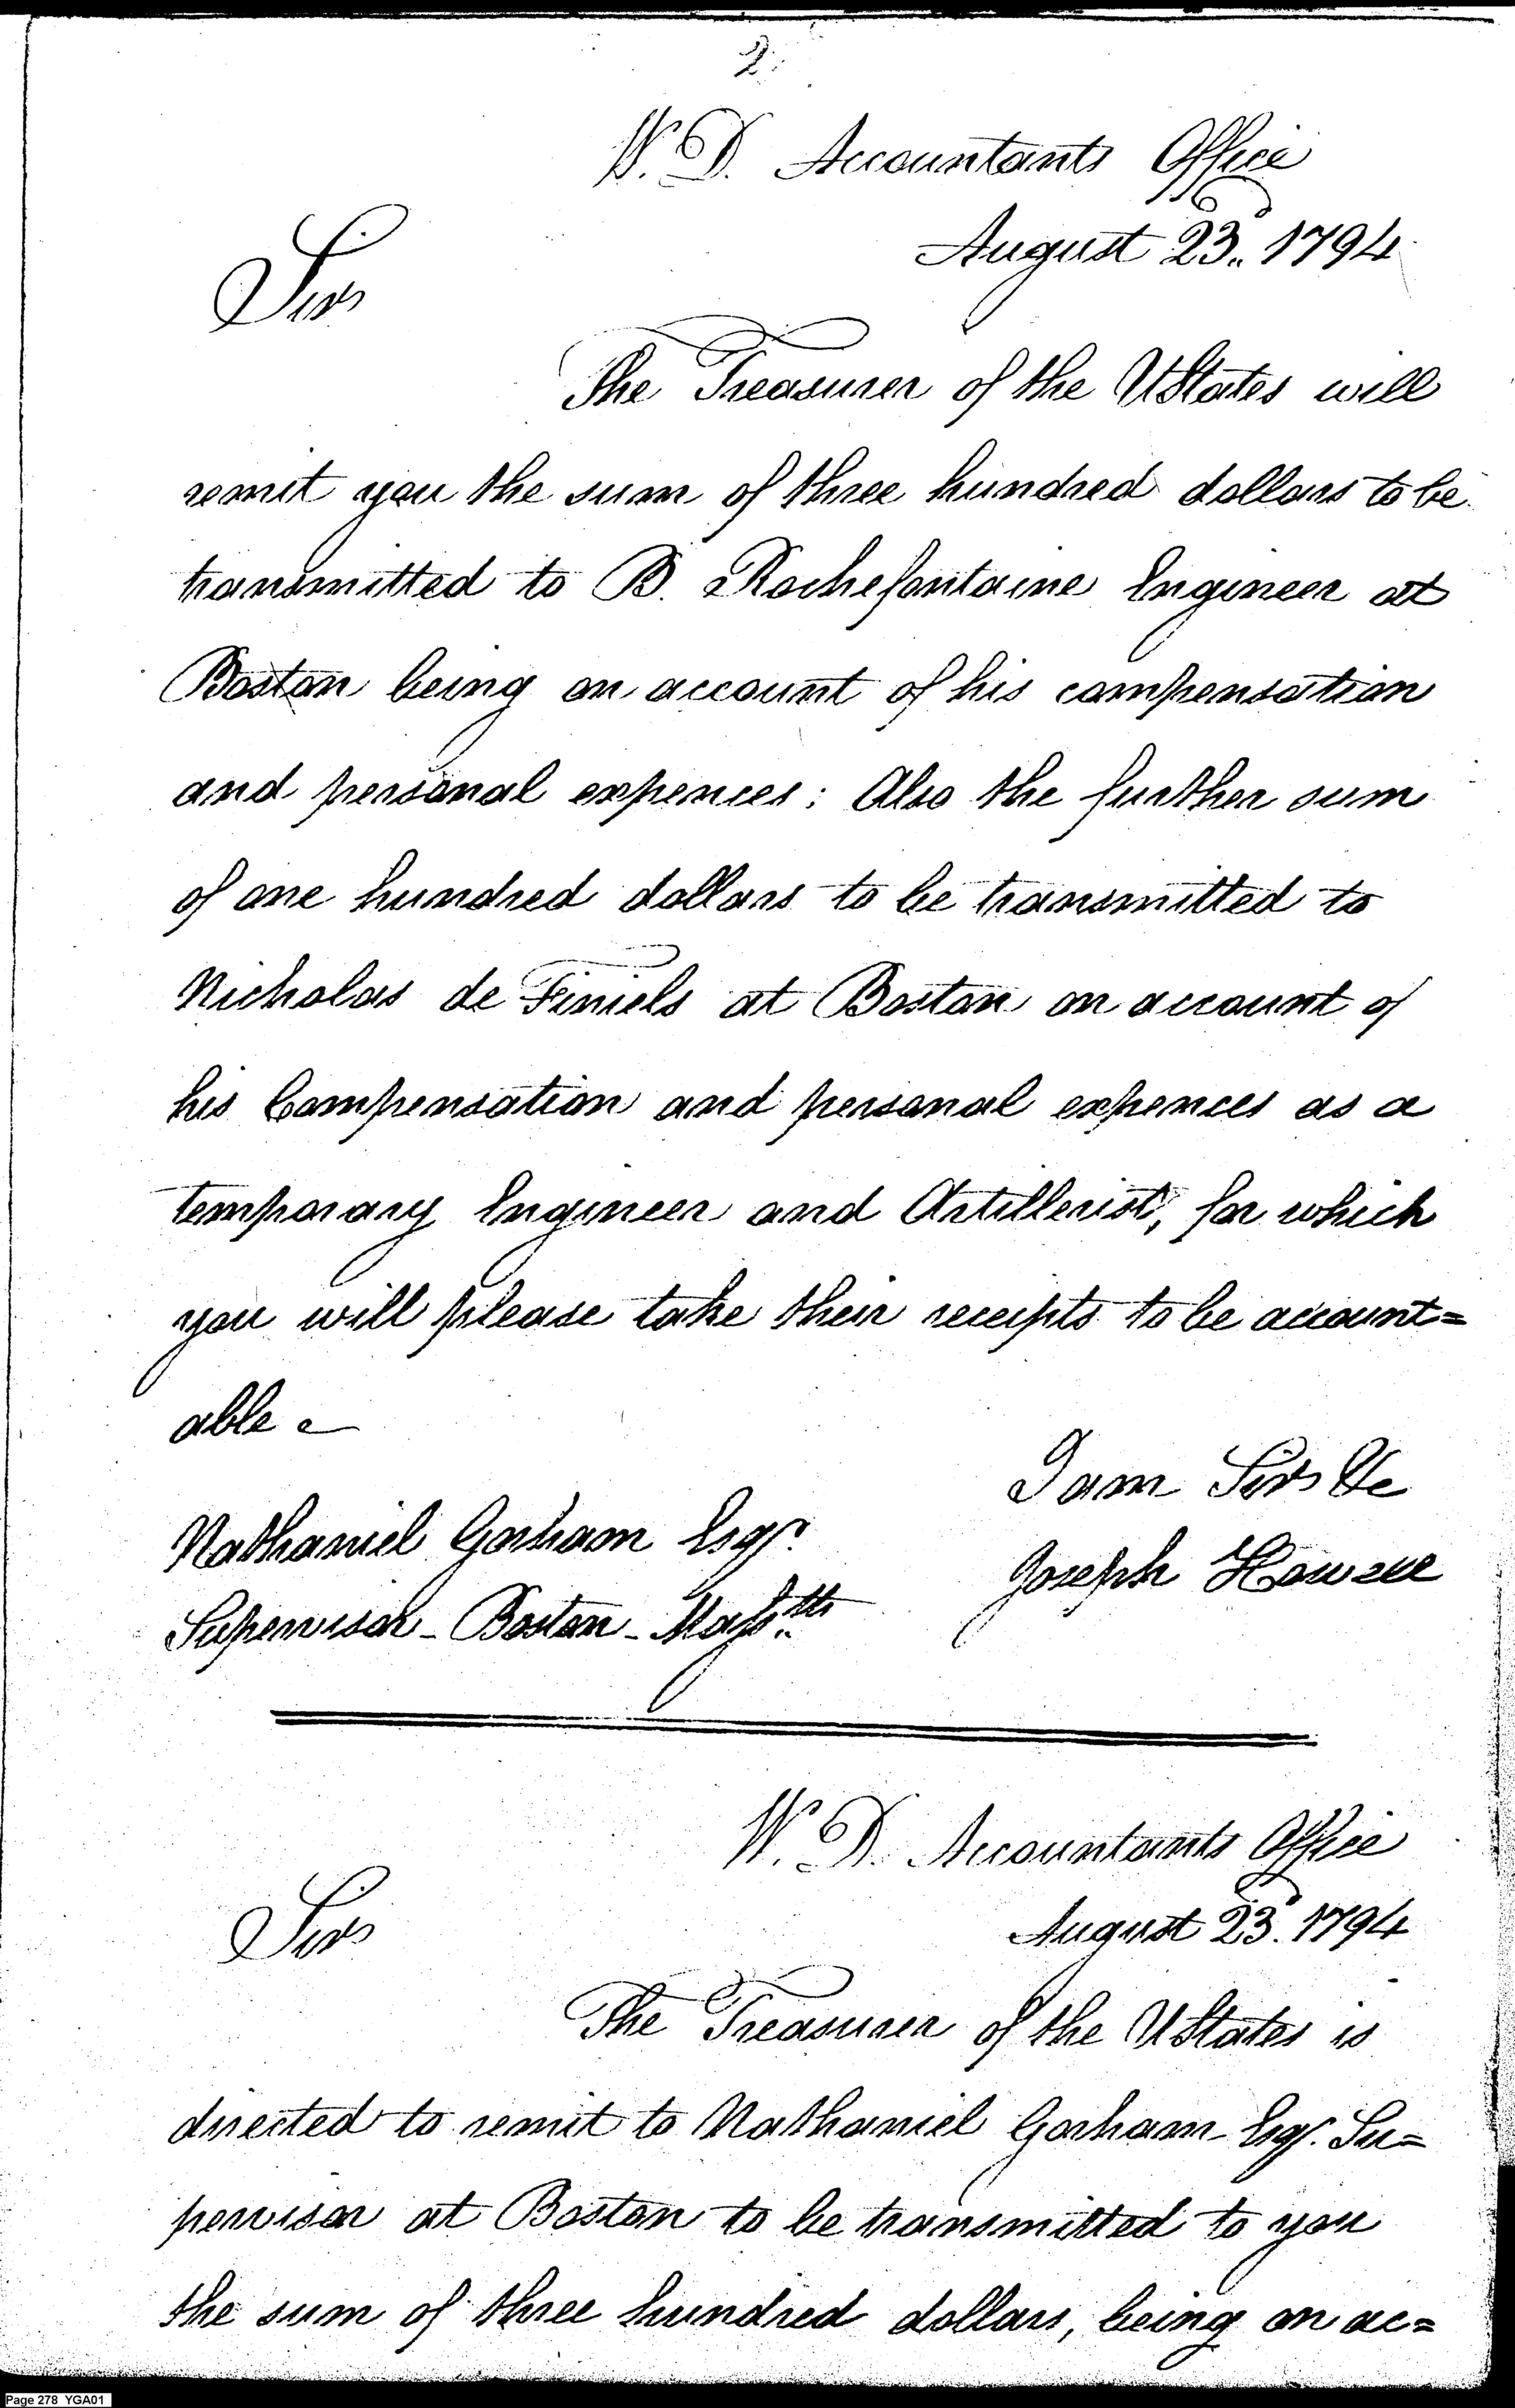 2
W. D. Accountants Office
August 23. 1794
Sir
The Treasurer of the UStates will
remit you the sum of three hundred dollars to be
transmitted to B. Rochefontaine Engineer at
Boston being on account of his compensation
and personal expences: Also the further sum
of one hundred dollars to be transmitted to
Nicholas de Finiels at Boston on account of
his Compensation and personal expences as a
temporary Engineer and Artillerist, for which
you will please take their receipts to be account=
able
I am Sir &c
Nathaniel Gorham Esqr.
Joseph Howell
Supervisor - Boston - Masstts
W. D. Accountants Office
August 23. 1794
Sir
The Treasurer of the UStates is
directed to remit to Nathaniel Gorham Esqr. Su=
pervisor at Boston to be transmitted to you
the sum of three hundred dollars, being on ac=
Page 278 YGA01